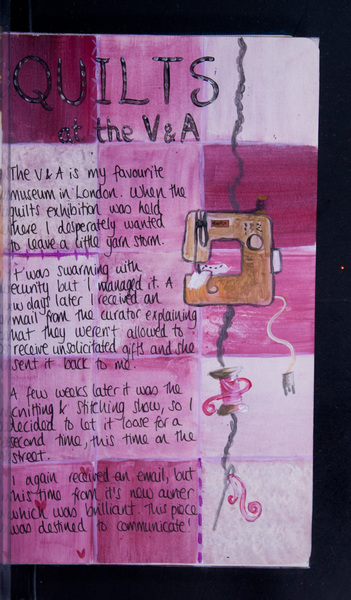 QUILTS
at the V&A
The V&A is my favourite
museum in London. When the
quilts exhibition was held
there I desperately wanted
to leave a little yarn storm.
It was swarming with
ecurity but I managed it. A
w days later I received an
mail from the curator explaining
hat they weren't allowed to
receive unsolicitated gifts and she
sent it back to me.
A few weeks later it was the
knitting & stitching show, so I
decided to let it loose for a
second time, this time on the
street.
I again received an email, but
this time from it's new owner
which was brilliant. This piece
was destined to communicate!